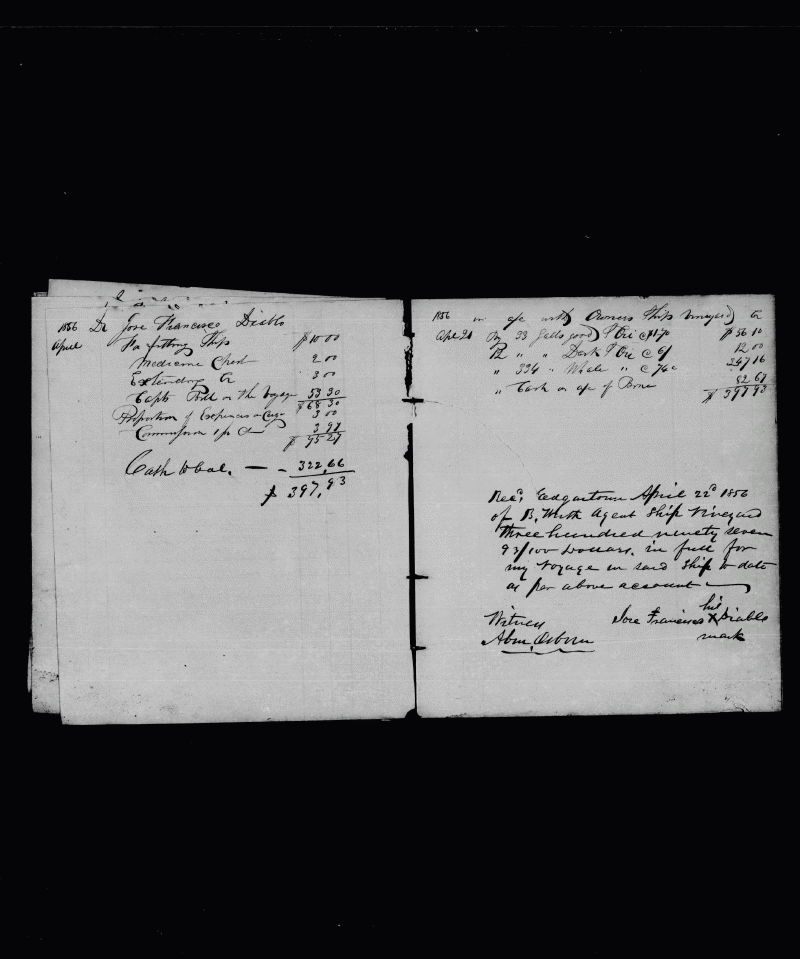 1856 Dr Jose Francisco Diablo
April For fitting Ship $10 00
Medicine Chest 2 00
Extending &c 3 00
Capts Bill on the Voyage 53 30
$68 30
Proportion of Expenses on Cargo 3 00
Commission 3 97
$75 27
Cash to bal. — - 322,66
$ 397,93
1856 in a/c with Owners Ship Vineyard Cr
Apl 21 By 33 Galls good Oil $56 10
12 " " Dark Oil 12 00
" 334 " Whale " 247 16
" Cash on a/c of Bone 82 67
$ 397 93
Recd. Edgartown April 22d 1856
of B. Worth Agent Ship Vineyard
Three hundred ninety seven
93/100 Dollars. in full for
my Voyage in said Ship to date
as per above account —
his
Witness Jose Francisco X Diablo
Abm. Osborn mark